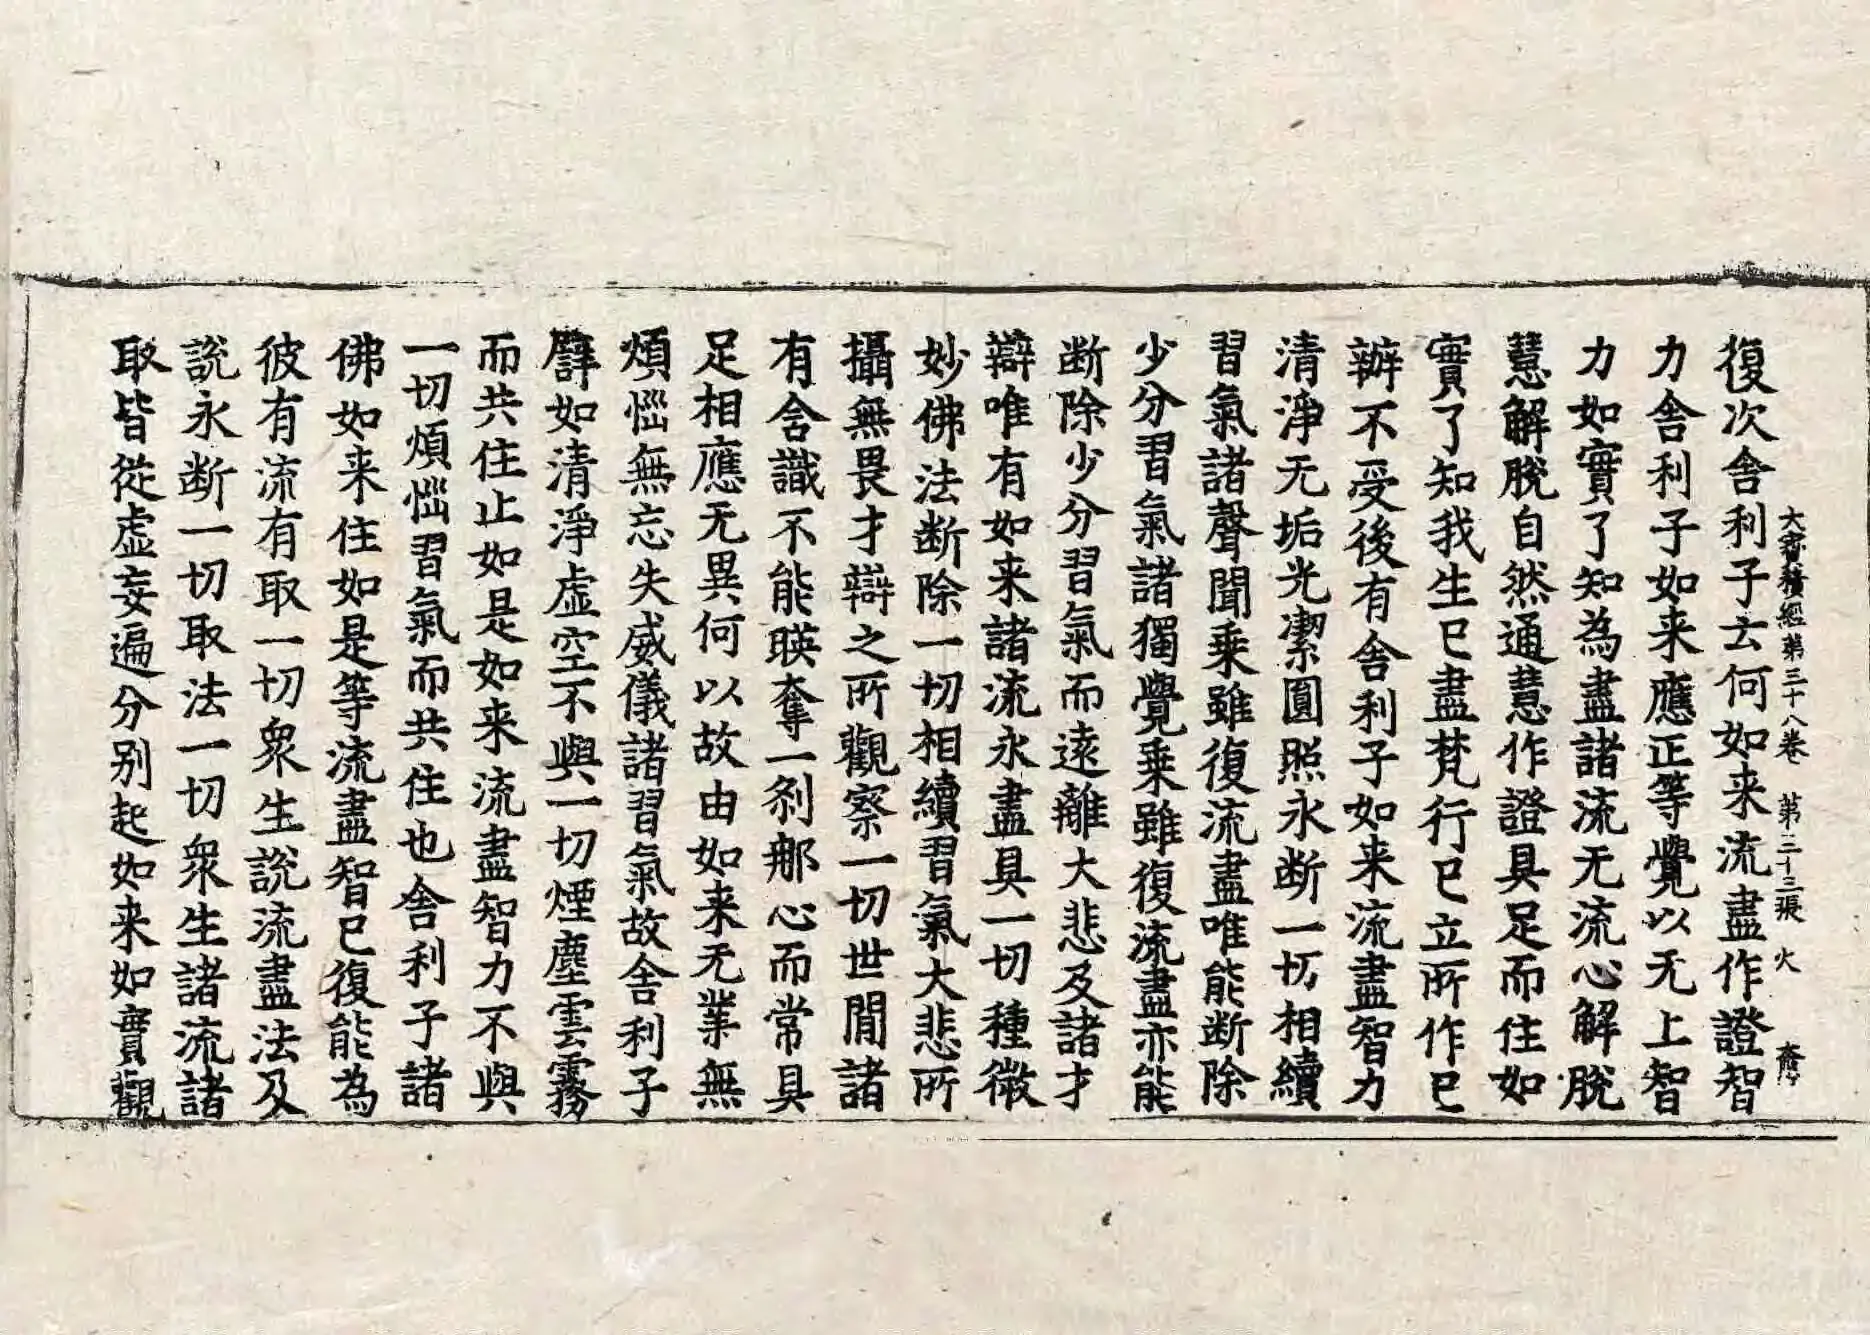 大寶積經第三十八卷　第三十三張　火
復次舍利子云何如来流盡作證智
力舍利子如来應正等覺以无上智
力如實了知為盡諸流无流心解脫
慧解脫自然通慧作證具足而住如
實了知我生已盡梵行已立所作已
辦不受後有舍利子如来流盡智力
清淨无垢光潔圓照永断一切相續
習氣諸聲聞乗雖復流盡唯能断除
少分習氣諸獨覺乗雖復流盡亦能
断除少分習氣而遠離大悲及諸才
辯唯有如来諸流永盡具一切種微
妙佛法断除一切相續習氣大悲所
攝無畏才辯之所觀察一切世間諸
有含識不能暎奪一刹那心而常具
足相應无異何以故由如来无業無
煩惱無忘失威儀諸習氣故舍利子
譬如清淨虛空不與一切煙塵雲霧
而共住止如是如来流盡智力不與
一切煩惱習氣而共住也舍利子諸
佛如来住如是等流盡智已復能為
彼有流有取一切衆生說流盡法及
說永断一切取法一切衆生諸流諸
取皆從虛妄遍分别起如来如實觀